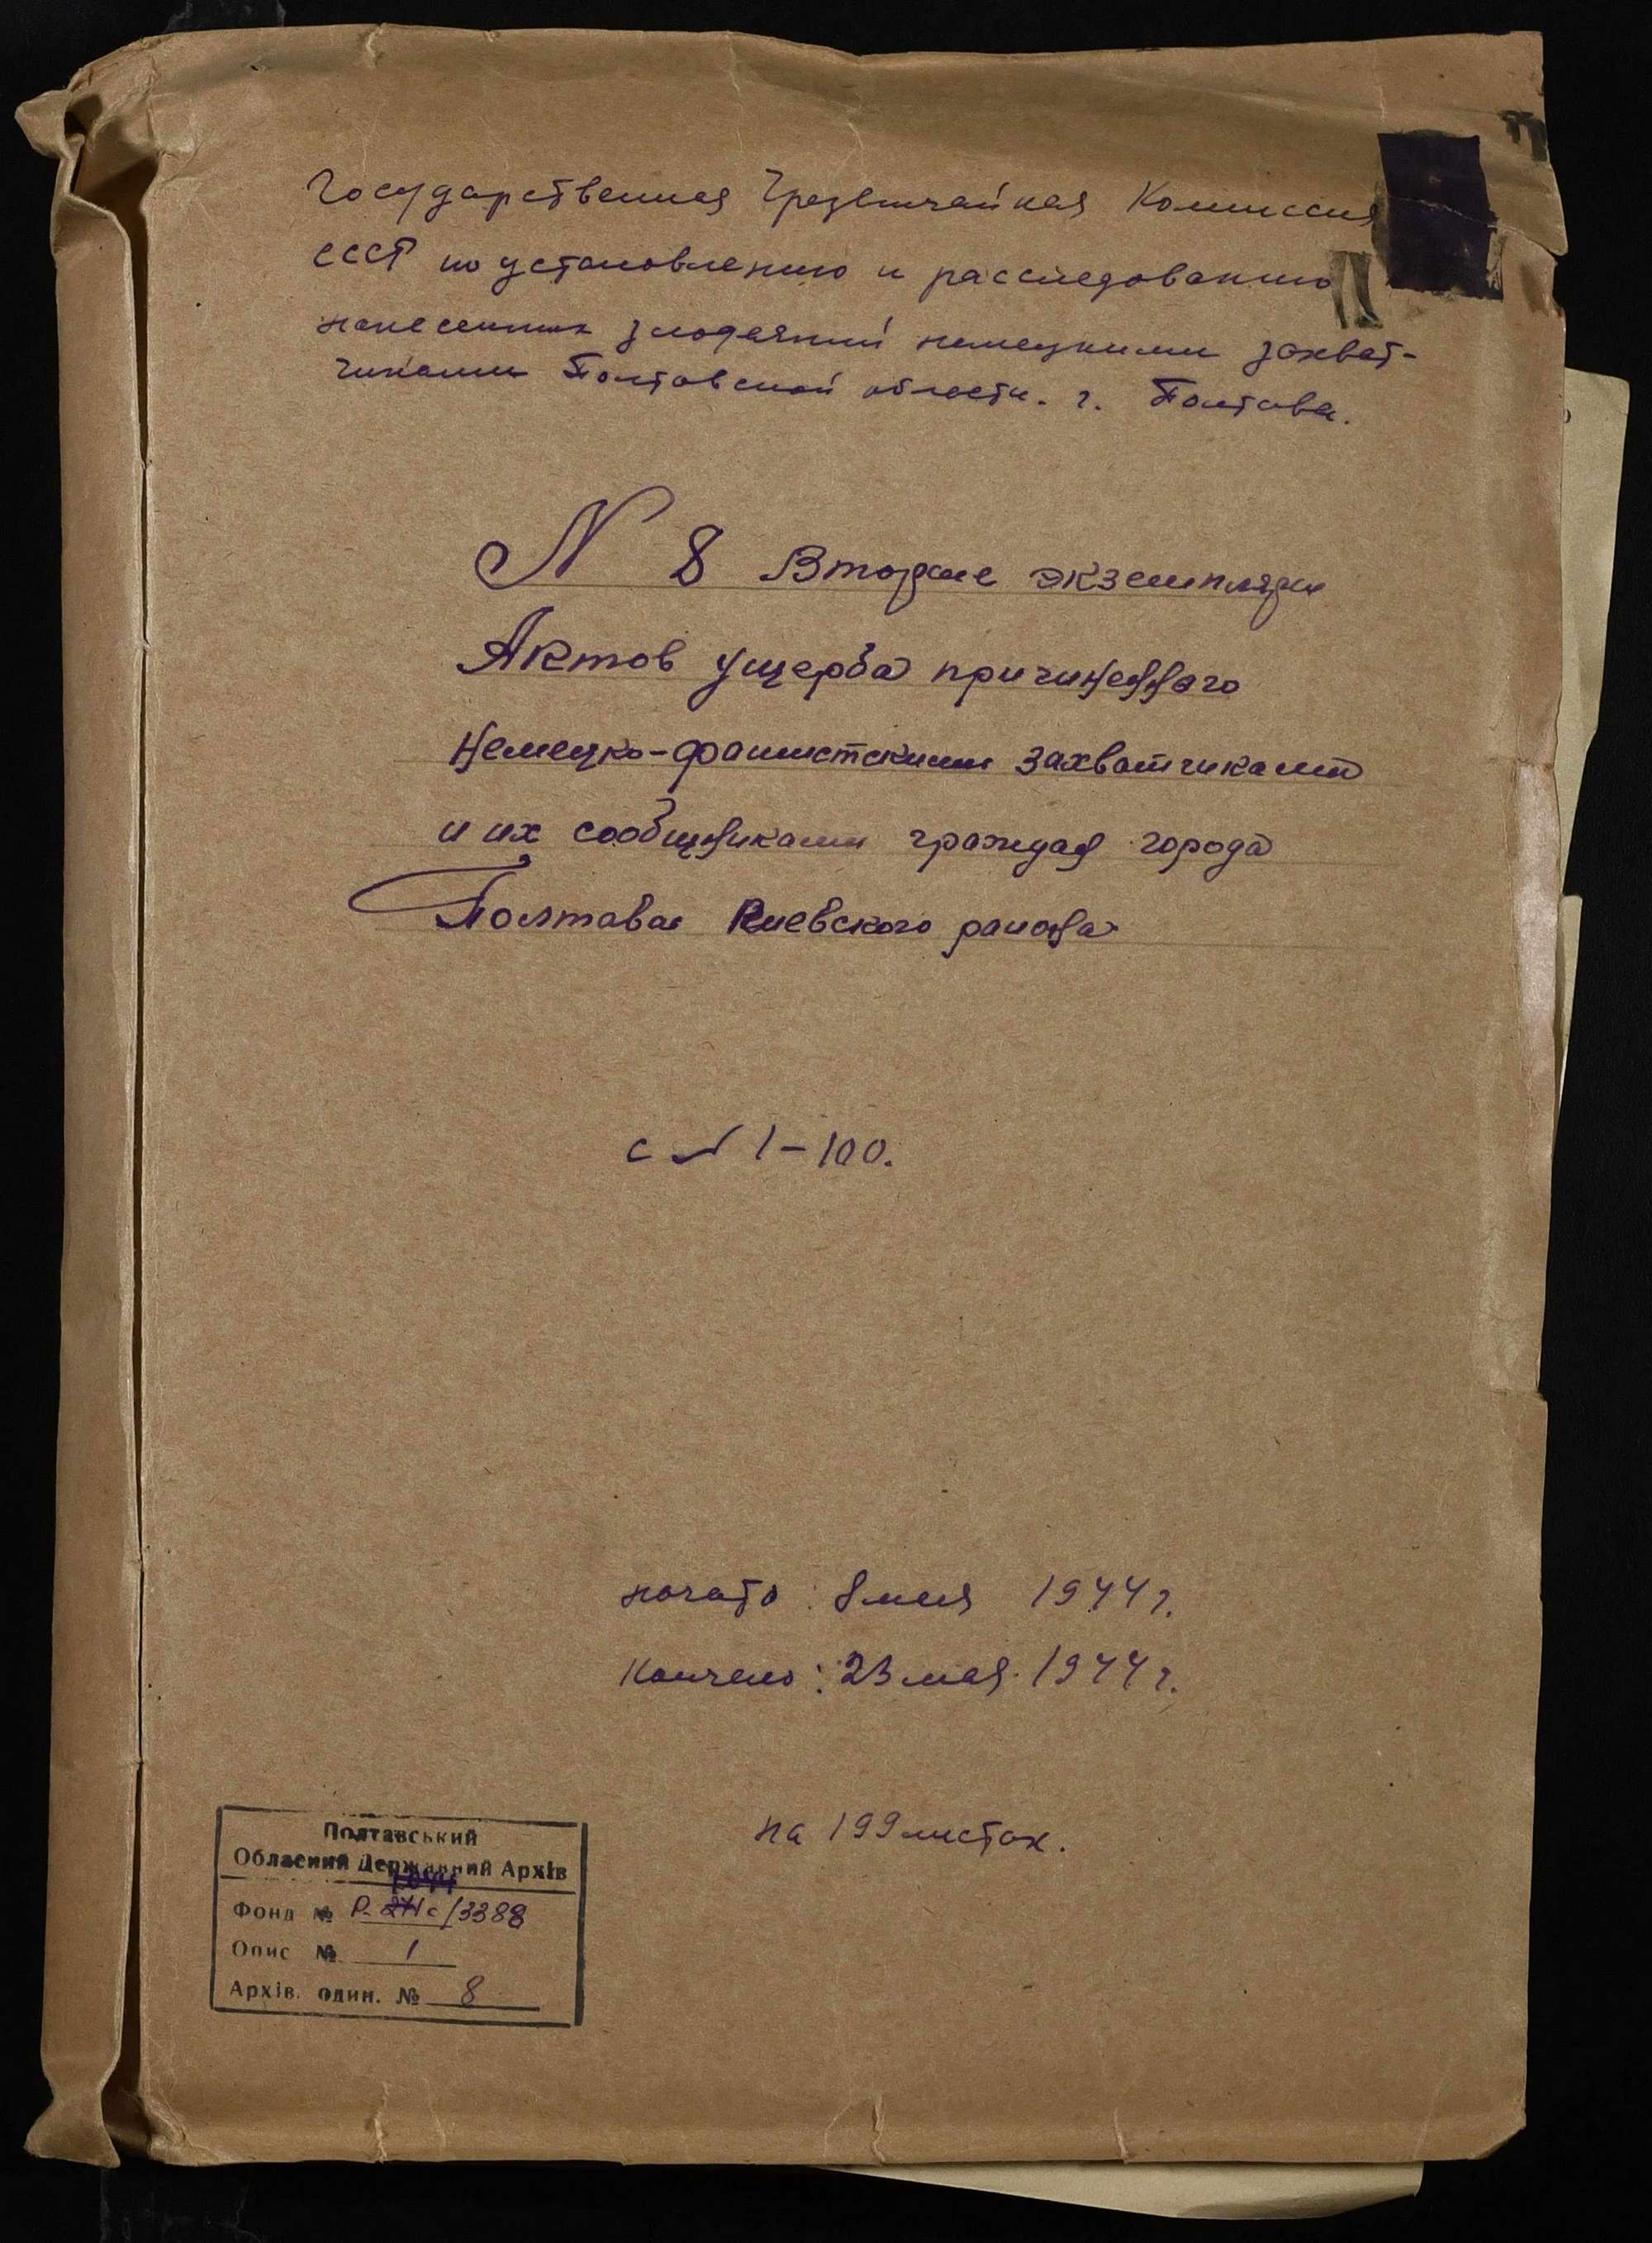 Государственная Чрезвычайная Комиссия
СССР по установлению и расследованию
нанесенных злодеяний немецкими захват-
чиками Полтавской области. г. Полтава.
N 8 Вторые экземпляры
Актов ущерба причиненного
Немецко-фашистскими захватчиками
и их сообщниками граждан города
Полтавы Киевского района
с N 1-100.
начато: 8 мая 1944 г.
Кончено: 23 мая 1944 г.
на 199 листах.
Полтавський
Обласний Державний Архів
Фонд № Р. с/3388
Опис № 1
Архів. один. № 8